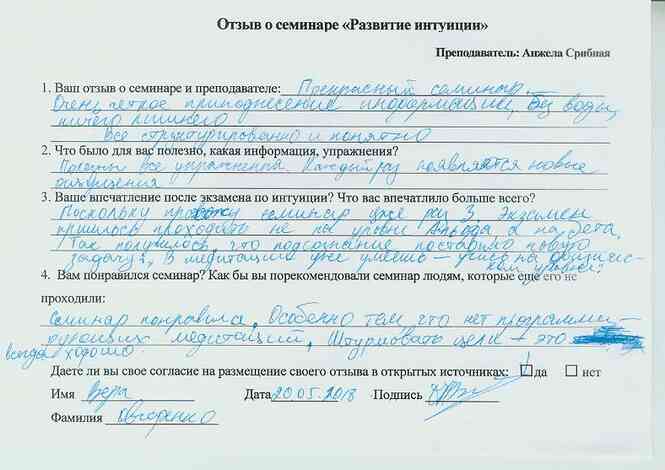 Отзыв о семинаре «Развитие интуиции»
Преподаватель: Анжела Срибная
1. Ваш отзыв о семинаре и преподавателе: Прекрасный семинар.
Очень четкое преподнесение информации, без воды,
ничего лишнего
Все структурировано и понятно
2. Что было для вас полезно, какая информация, упражнения?
Полезны все упражнения. Каждый раз появляются новые
ощущения
3. Ваше впечатление после экзамена по интуиции? Что вас впечатлило больше всего?
Поскольку прохожу семинар уже раз 3, экзамен
пришлось проходить не на уровне Альфа, а на бета.
Так получилось, что подсознание поставило новую
задачу: В медитации уже умеешь – учись на физичес-
ком уровне.
4. Вам понравился семинар? Как бы вы порекомендовали семинар людям, которые еще его не
проходили:
Семинар понравился, Особенно тем, что нет программи-
рующих медитаций, Штурмовать цели – это
всегда хорошо.
Даете ли вы свое согласие на размещение своего отзыва в открытых источниках: да нет
Имя Вера Дата 20.05.2018 Подпись
Фамилия